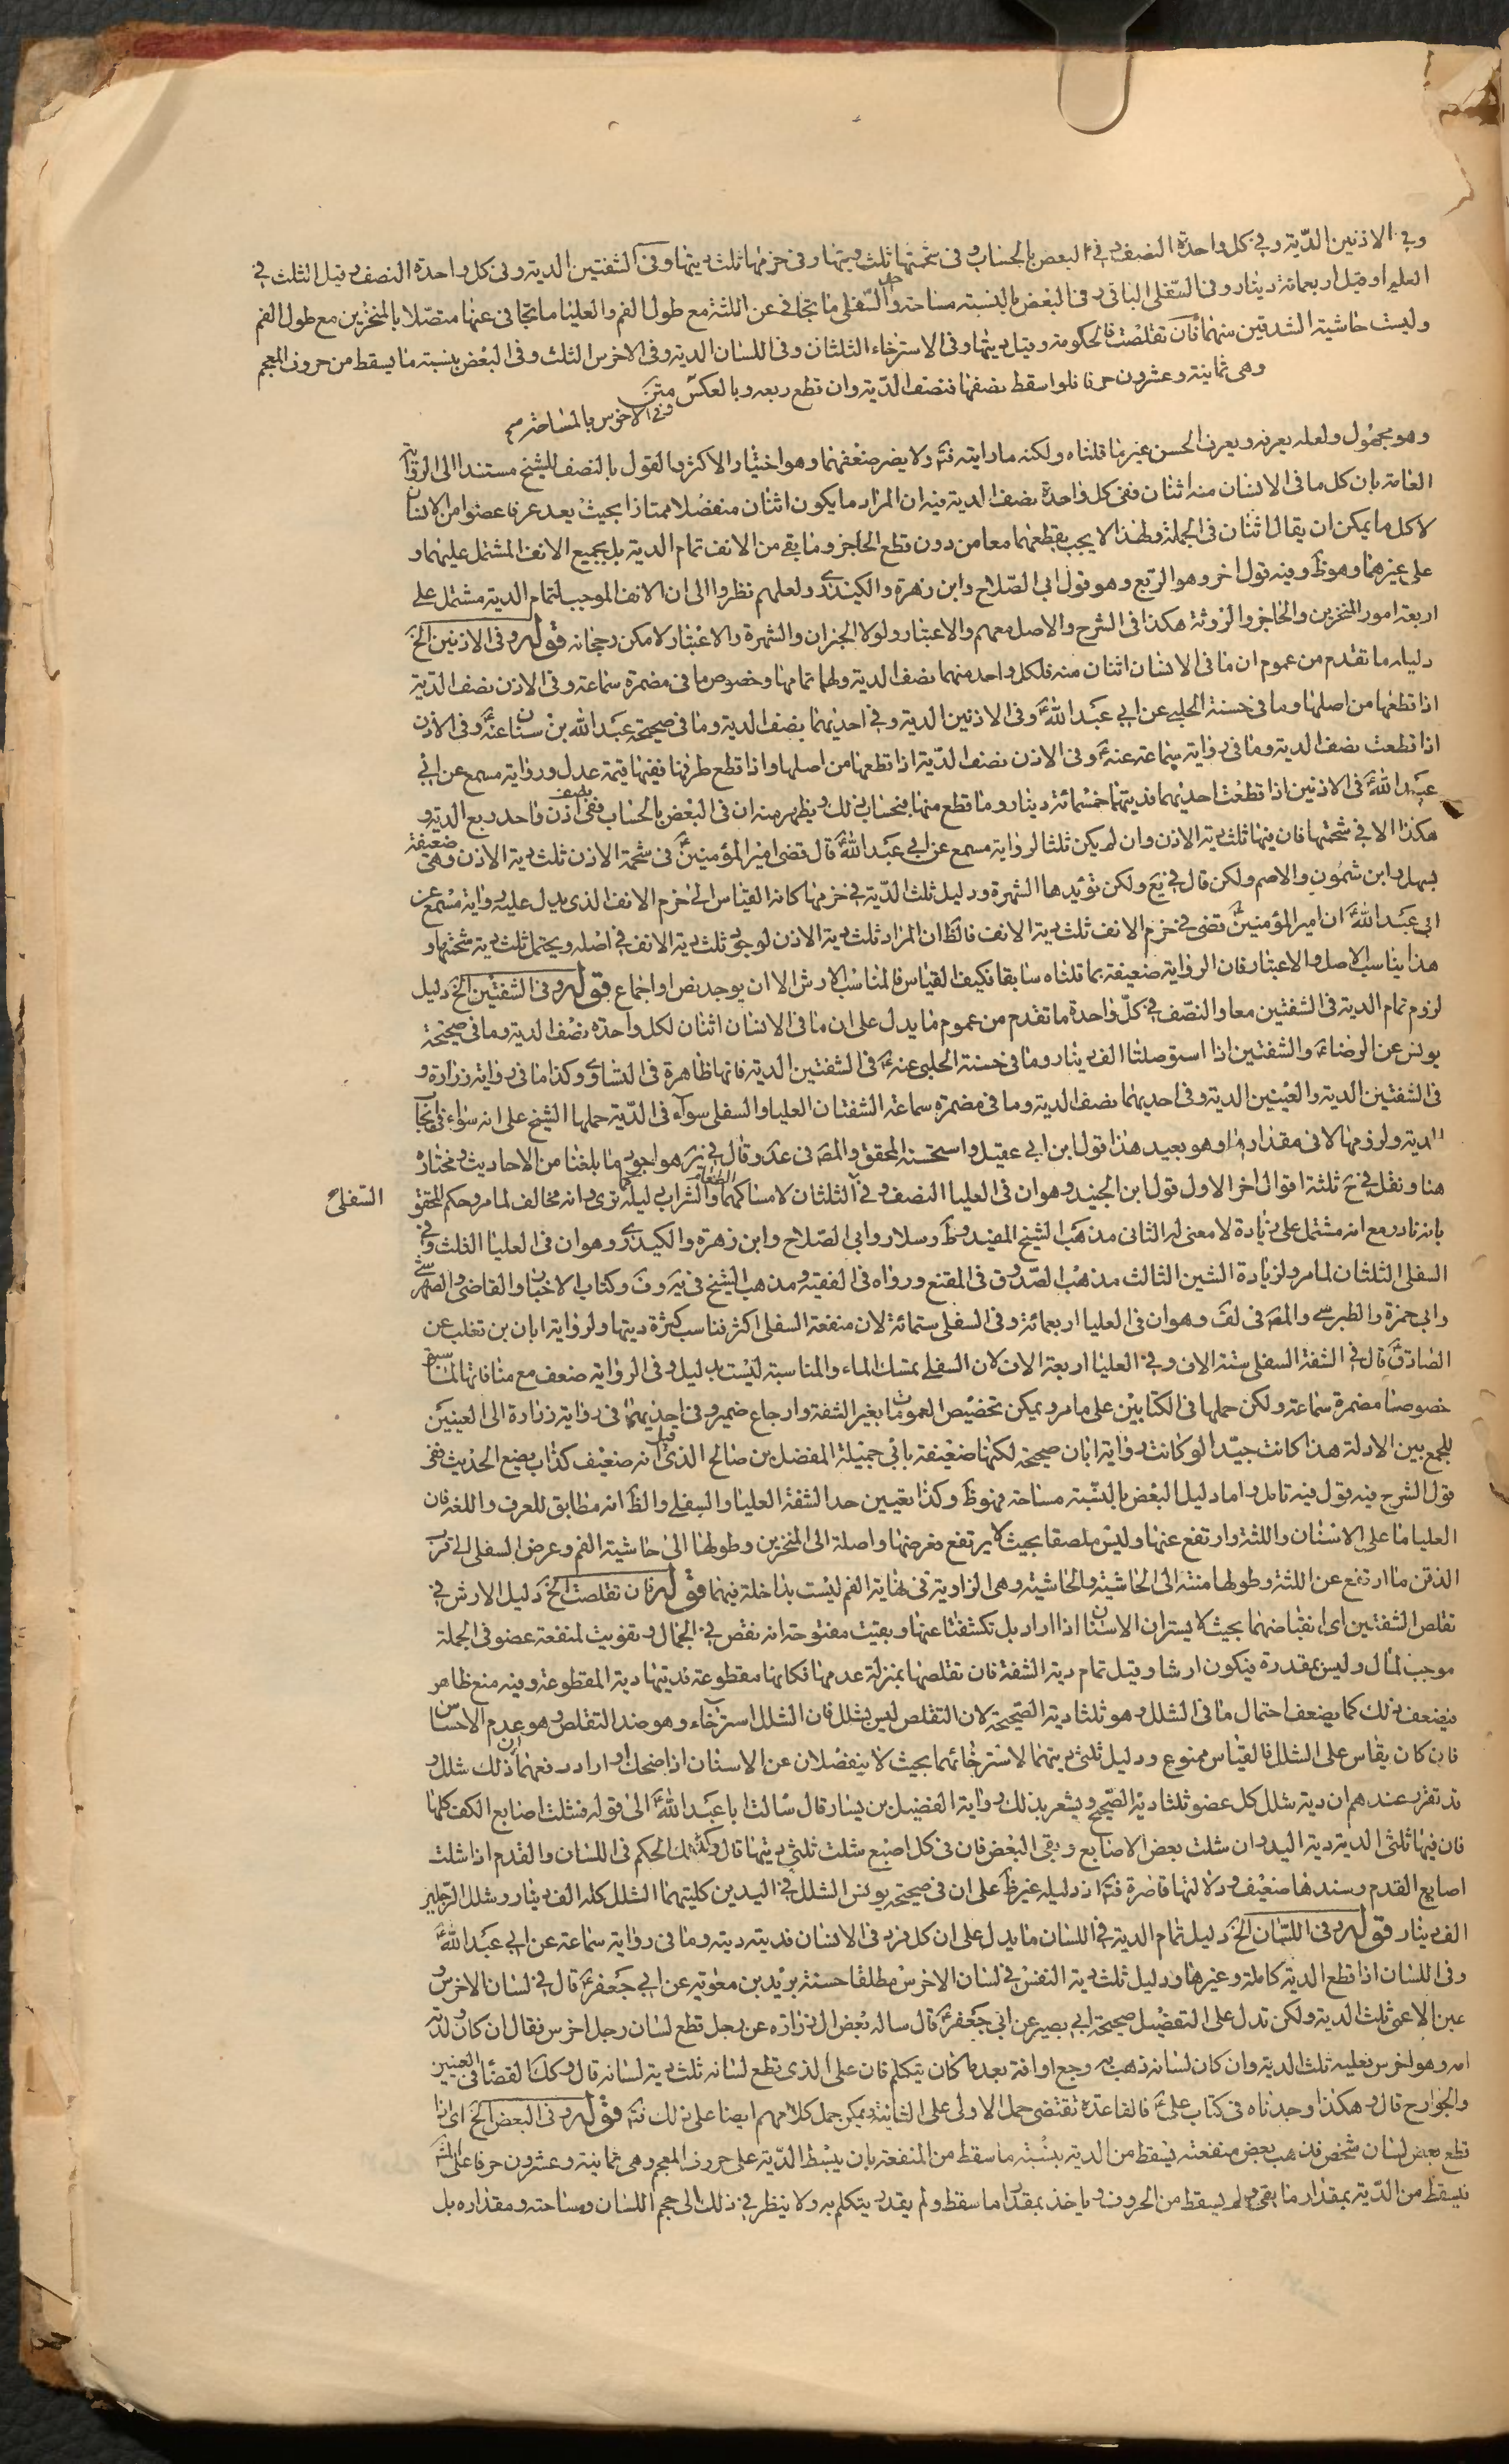 وفي الاذنين الدّية وفي كل واحدة النصف وفي البعض بالحساب وفي شحمتها ثلث ديتها وفي خرمها ثلث ديتها وفي الشفتين الدية وفي كل واحدة النصف وقيل الثلث في
العليا وقيل اربعمائة دينار وفي السّفلى الباقي وفي البعض بالنسبة مساحة وحد السّفلى ما تجافى عن اللثة مع طول الفم والعليا ما تجافى عنها متصلا بالمنخرين مع طول الفم
وليست حاشية الشدقين منهما فان تقلصت فالحكومة وقيل ديتها وفي الاسترخاء الثلثان وفي اللسان الدية وفي الاخرس الثلث وفي البعض بنسبة ما يسقط من حروف المعجم
وهى ثمانية وعشرون حرفا فلو اسقط نصفها فنصف الدّية وان قطع ربعه وبالعكس متن
وفي الاخرس بالمساحة صح
وهو مجهول ولعله يعرفه ويعرف الحسن غير ما قلناه ولكنه ما رايته فتم ولا يضر ضعفهما وهو اختيار الاكثر والقول بالنصف للشيخ مستندا الى الرواية
العامة بان كل ما في الانسان منه اثنان ففي كل واحدة نصف الدية فيه ان المراد ما يكون اثنان منفصلا ممتازا بحيث يعد عرفا عضوا من الانسان
لا كل ما يمكن ان يقال اثنان في الجملة ولهذا لا يجب بقطعهما معا من دون قطع الحاجز وما بقي من الانف تمام الدية بل بجميع الانف المشتمل عليهما و
على غيرهما وهو ظ وفيه قول اخر وهو الربع وهو قول ابي الصّلاح وابن زهرة والكيدرى ولعلهم نظروا الى ان الانف الموجب لتمام الدية مشتمل على
اربعة امور المنخرين والحاجز والروثة هكذا في الشرح والاصل معهم والاعتبار ولولا الجبران والشهرة والاعتبار لامكن رجحانه قوله وفي الاذنين الخ
دليله ما تقدم من عموم ان ما في الانسان اثنان منه فلكل واحد منهما نصف الدية ولهما تمامها وخصوص ما في مضمرة سماعة وفي الاذن نصف الدّية
اذا قطعها من اصلها وما في حسنة الحلبي عن ابي عبد اللهؑ وفي الاذنين الدية وفي احديهما نصف الدية وما في صحيحة عبد الله بن سنان عنهؑ وفي الاذن
اذا قطعت نصف الدية وما في رواية سماعة عنهؑ وفي الاذن نصف الدّية اذا قطعها من اصلها واذا قطع طرفها ففيها قيمة عدل ورواية مسمع عن ابي
عبد اللهؑ في الاذنين اذا قطعت احديهما فديتها خمسمائة دينار وما قطع منها فبحساب ذلك ويظهر منه ان في البعض بالحساب ففي نصف اذن واحد ربع الدية و
هكذا الا في شحمتها فان فيها ثلث دية الاذن وان لم يكن ثلثا لرواية مسمع عن ابي عبد اللهؑ قال قضى امير المؤمنينؑ في شحمة الاذن ثلث دية الاذن وهي ضعيفة
بسهل وابن شمون والاصم ولكن قال في يع ولكن تؤيدها الشهرة ودليل ثلث الدّية في خرمها كانه القياس الى خرم الانف الذي يدل عليه رواية مسمع عن
ابي عبد اللهؑ ان امير المؤمنينؑ قضى في خرم الانف ثلث دية الانف فالظ ان المراد ثلث دية الاذن لوجوب ثلث دية الانف في اصله ويحتمل ثلث دية شحمتها و
هذا يناسب الاصل والاعتبار فان الرواية ضعيفة بما قلناه سابقا فكيف القياس فالمناسب الارش الا ان يوجد نص او اجماع قوله وفي الشفتين الخ دليل
لزوم تمام الدية في الشفتين معا والنصف في كلّ واحدة ما تقدم من عموم ما يدل على ان ما في الانسان اثنان لكل واحدة نصف الدية وما في صحيحة
يونس عن الرضاؑ والشفتين اذا استوصلتا الف دينار وما في حسنة الحلبي عنهؑ في الشفتين الدية فانها ظاهرة في التساوى وكذا ما في رواية زرارة و
في الشفتين الدية والعينين الدية وفي احديهما نصف الدية وما في مضمرة سماعة الشفتان العليا والسفلى سوآء في الدّية حملها الشيخ على انه سواء في ايجاب
الدية ولزومها لا في مقدارها وهو بعيد هذا قول ابن ابي عقيل واستحسنه المحقق والمصـ في عد وقال في ير هو اجود ما بلغنا من الاحاديث ومختاره
هنا ونقل في ثلثة اقوال اخر الاول قول ابن الجنيد وهو ان في العليا النصف وفي الثلثان لامساكهما الطعام والشراب ليلة ترى انه مخالف لما مر وحكم المحقق
السّفلى
بانه نادر مع انه مشتمل على زيادة لا معنى له الثاني مذهب الشيخ المفيد وط وسلار وابي الصّلاح وابن زهرة والكيدرى وهو ان في العليا الثلث وفي
السفلى الثلثان لما مر ولزيادة الشين الثالث مذهب الصّدوق في المقنع ورواه في الفقيه ومذهب الشيخ في يه وف وكتاب الاخبار والقاضي والصهرشتي
وابي حمزة والطبرسي والمصـ في لف وهو ان في العليا اربعمائة وفي السفلى ستمائة لان منفعة السفلى اكثر فناسب كثرة ديتها ولرواية ابان بن تغلب عن
الصادقؑ قال في الشفة السفلى ستة الاف وفي العليا اربعة الاف لان السفلى تمسك الماء والمناسبة ليست بدليل وفي الرواية ضعف مع منافاتها لما سبق
خصوصا مضمرة سماعة ولكن حملها في الكتابين على ما مر ويمكن تخصيص العمومات بغير الشفة وارجاع ضمير وفي احديهما في رواية زرارة الى العينين
للجمع بين الادلة هذا كانت جيّدا لو كانت رواية ابان صحيحة لكنها ضعيفة بابي جميلة المفضل بن صالح الذي قيل انه ضعيف كذاب يضع الحديث ففي
قول الشرح فيه قول فيه تامل واما دليل البعض بالنسبة مساحة فهو ظ وكذا تعيين حد الشفة العليا والسفلى والظ انه مطابق للعرف واللغة فان
العليا ما على الاسنان واللثة وارتفع عنها وليس ملصقا بحيث لا يرتفع فعرضها واصلة الى المنخرين وطولها الى حاشية الفم وعرض السفلى الى قرب
الذقن ما ارتفع عن اللثة وطولها منتهٍ الى الحاشية والحاشية وهي الزاوية في نهاية الفم ليست بداخلة فيهما قوله فان تقلصت الخ دليل الارش في
تقلص الشفتين اى انقباضهما بحيث لا يستران الاسنان اذا اراد بل تكشفتا عنها وبقيت مفتوحة انه نقص في الجمال وتفويت لمنفعة عضو في الجملة
موجب لمال وليس بمقدرة فيكون ارشا وقيل تمام دية الشفة فان تقلصها بمنزلة عدمها فكانها مقطوعة فديتها دية المقطوعة وفيه منع ظاهر
فيضعف ذلك كما يضعف احتمال ما في الشلل وهو ثلثا دية الصّحيحة لان التقلص ليس بشلل فان الشلل استرخاء وهو ضد التقلص وهو عدم الاحساس
فان كان يقاس على الشلل فالقياس ممنوع ودليل ثلثي ديتهما لاسترخائهما بحيث لا ينفصلان عن الاسنان اذا ضحك او اراد رفعهما ان ذلك شلل و
قد تقرر عندهم ان دية شلل كل عضو ثلثا دية الصّحيح ويشعر بذلك رواية الفضيل بن يسار قال سالت ابا عبد اللهؑ الى قوله فشلت اصابع الكف كلها
فان فيها ثلثي الدية دية اليد وان شلت بعض الاصابع وبقي البعض فان في كل اصبع شلت ثلثي ديتها قال وكذلك الحكم في اللسان والقدم اذا شلت
اصابع القدم وسندها ضعيف ودلالتها قاصرة فتم اذ دليله غير ظ على ان في صحيحة يونس الشلل في اليدين كليتهما الشلل كله الف دينار وشلل الرجلين
الف دينار قوله وفي اللسان الخ دليل تمام الدية في اللسان ما يدل على ان كل فرد في الانسان فديته دية وما في رواية سماعة عن ابي عبد اللهؑ
وفي اللسان اذا قطع الدية كاملة وغيرها ودليل ثلث دية النفس في لسان الاخرس مطلقا حسنة بريد بن معوية عن ابي جعفرؑ قال في لسان الاخرس و
عين الاعمى ثلث الدية ولكن تدل على التفصيل صحيحة ابي بصير عن ابي جعفرؑ قال ساله بعض ال زرارة عن رجل قطع لسان رجل اخرس فقال ان كان ولدته
امه وهو اخرس فعليه ثلث الدية وان كان لسانه ذهب به وجع او افة بعد ما كان يتكلم فان على الذي قطع لسانه ثلث دية لسانه قال وكك القضا في العينين
والجوارح قال وهكذا وجدناه في كتاب عليؑ فالقاعدة تقتضي حمل الاولى على الثانية ويمكن حمل كلامهم ايضا على ذلك فتم قوله وفي البعض الخ اى اذا
قطع بعض لسان شخص فذهب بعض منفعته يسقط من الدية بنسبة ما سقط من المنفعة بان يبسط الدّية على حروف المعجم وهى ثمانية وعشرون حرفا على
فيسقط من الدّية بمقدار ما بقى ولم يسقط من الحروف وياخذ بمقدار ما سقط ولم يقدر يتكلم به ولا ينظر في ذلك الى حجم اللسان ومساحته ومقداره بل